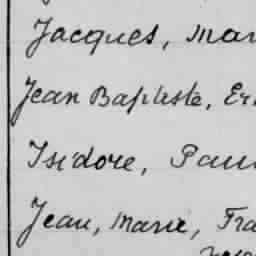 Jacques, Mar
Jean Baptiste, Er
Isidore, Pau
Jean, Marie, Fra